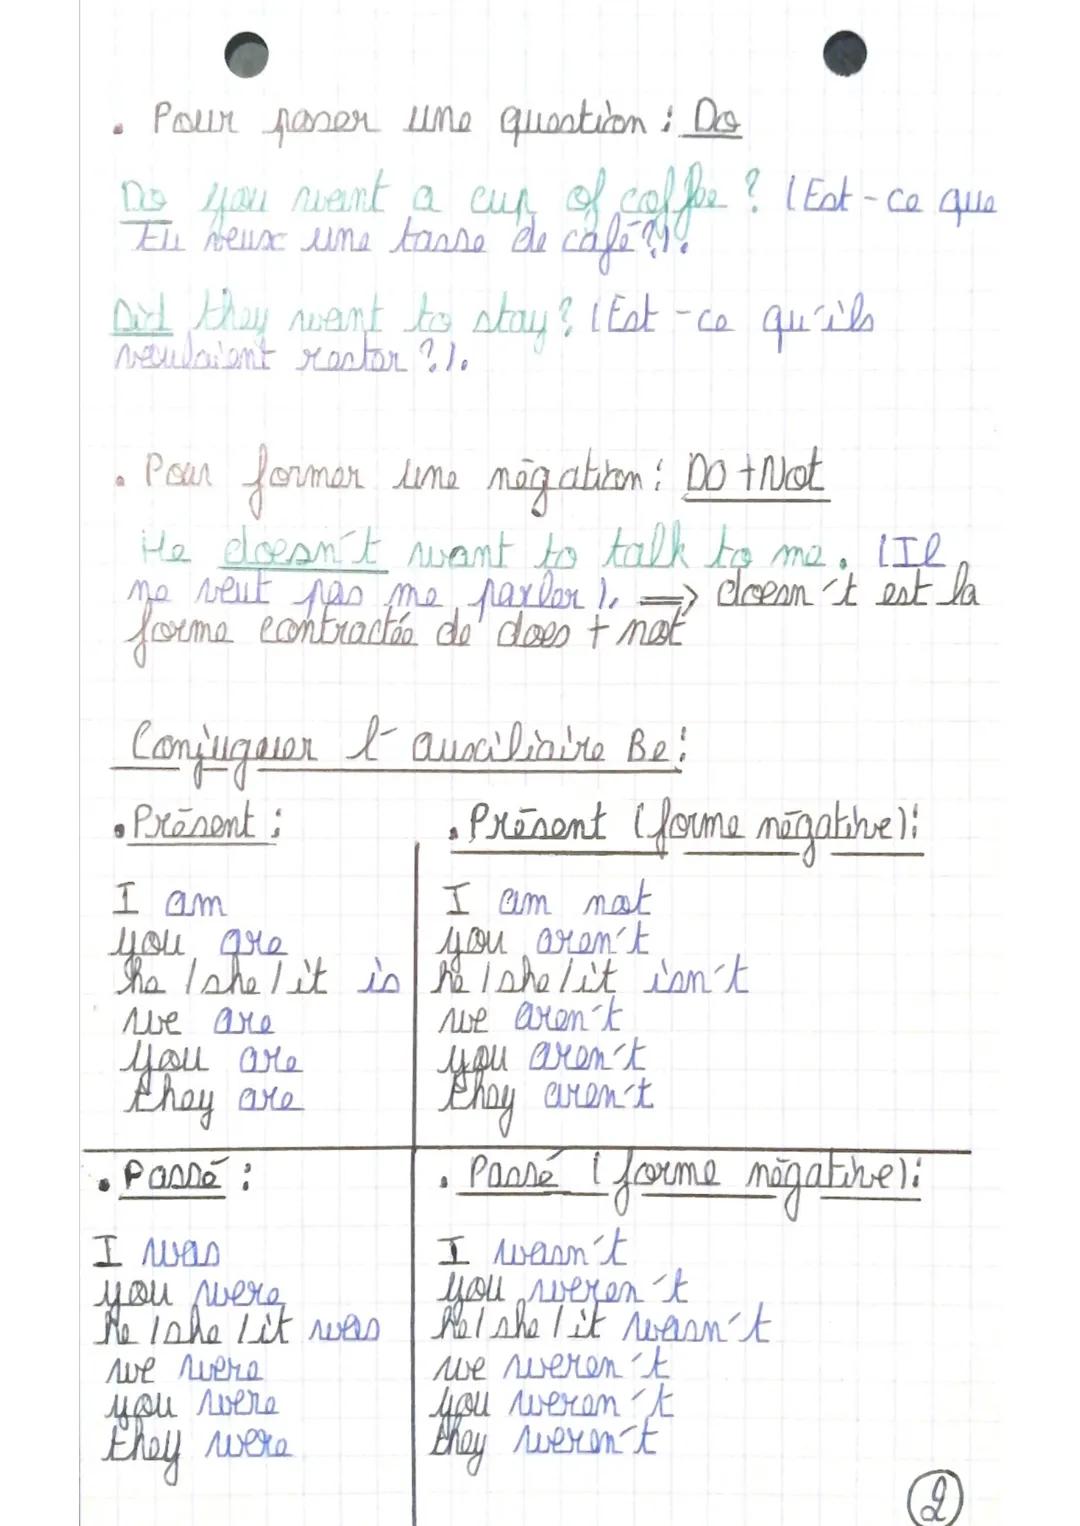 . Pour poser une question : Do
Do you want a cup of coffee ? (Est-ce que
tu veux une tasse de café ?).
Did they want to stay ? (Est-ce qu'ils
voulaient rester ?).
. Pour former une négation : DO + Not
He doesn't want to talk to me. (Il
ne veut pas me parler). => doesn't est la
forme contractée de does + not
Conjuguer l'auxiliaire Be :
. Présent :
I am
you are
he / she / it is
we are
you are
they are
. Présent (forme négative) :
I am not
you aren't
he / she / it isn't
we aren't
you aren't
they aren't
. Passé :
I was
you were
he / she / it was
we were
you were
they were
. Passé (forme négative) :
I wasn't
you weren't
he / she / it wasn't
we weren't
you weren't
they weren't
2